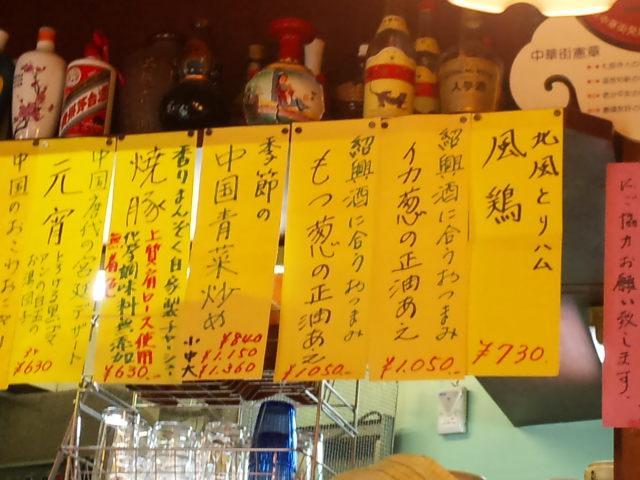 中華街憲章
人参酒
貴州茅台酒
北風とりハム
風鶏
¥730.
紹興酒に合うおつまみ
イカ葱の正油あえ
¥1.050.
紹興酒に合うおつまみ
もつ葱の正油あえ
¥1050.
季節の
中国青菜炒め
¥840
小 ¥1.150
中 大 ¥1.360
香りまんぞく自家製チャーシュー
焼豚
上質肩ロース使用
化学調味料無添加
無着色
¥630.
中国唐代の宮廷デザート
元宵
とろける黒ゴマ
アンの白玉の
お菓団子
¥630
中国のおこわおにぎり
にご協力お願い致します。